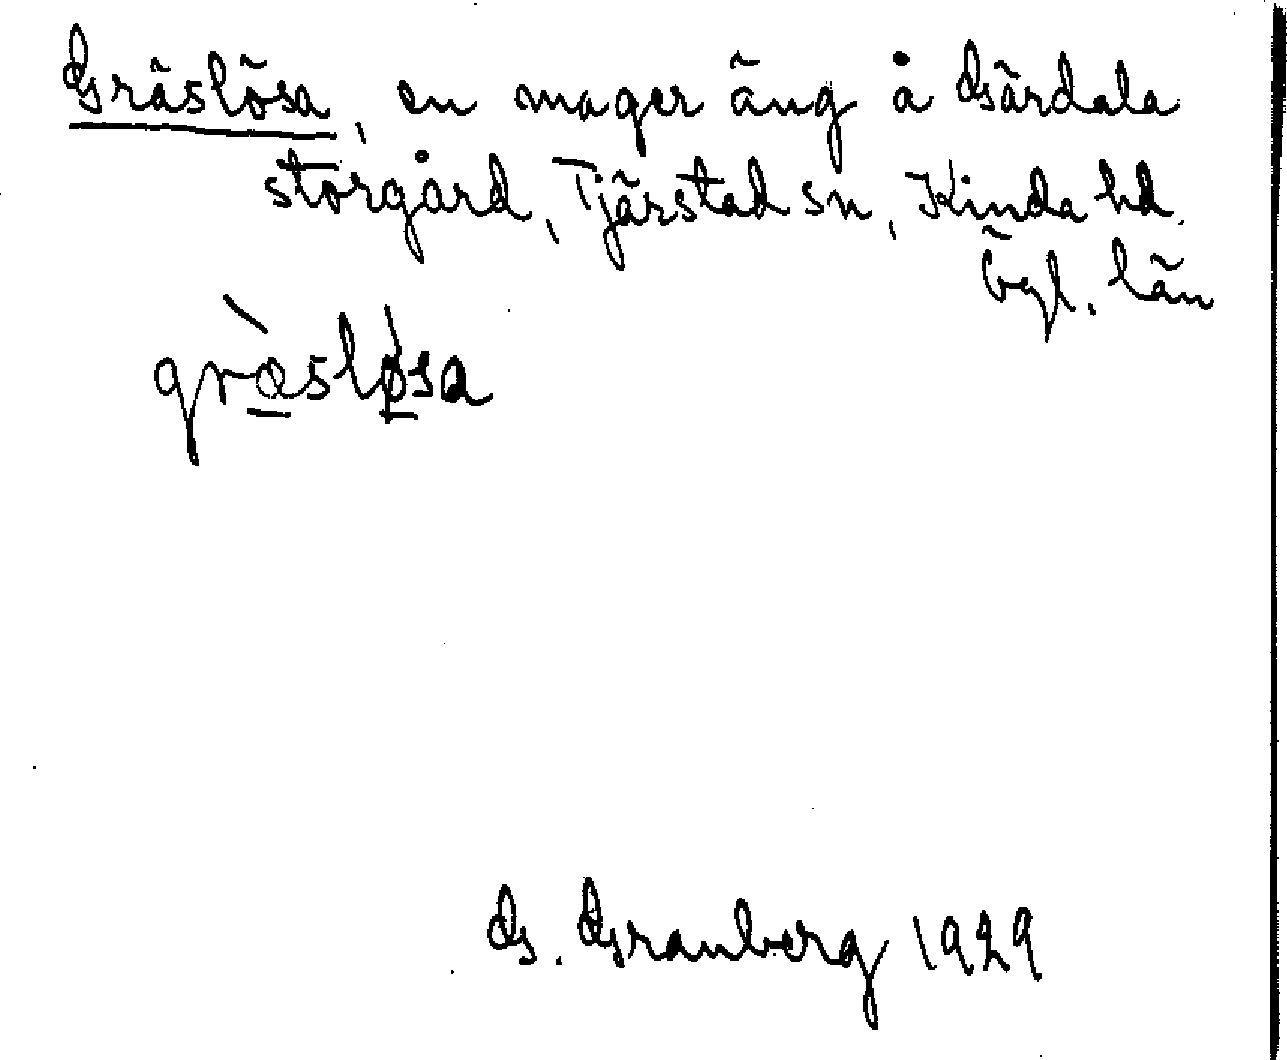 Gräslösa, en mager äng å Gärdala
storgård, Tjärstad sn, Kinda hd.
Ögl. län
gràsløsa
G. Granberg 1929